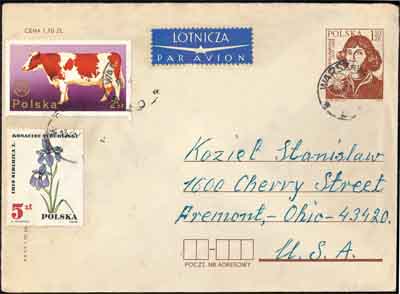 CENA 1,70 ZŁ.
LOTNICZA
PAR AVION
POLSKA
Polska
2zł
KOSACIEC SYBERYJSKI
IRIS SIBIRICA L.
5 zł
POLSKA
Kozieł Stanisław
1600 Cherry Street
Fremont,-Ohio-43420.
U. S. A.
POCZT. NR ADRESOWY